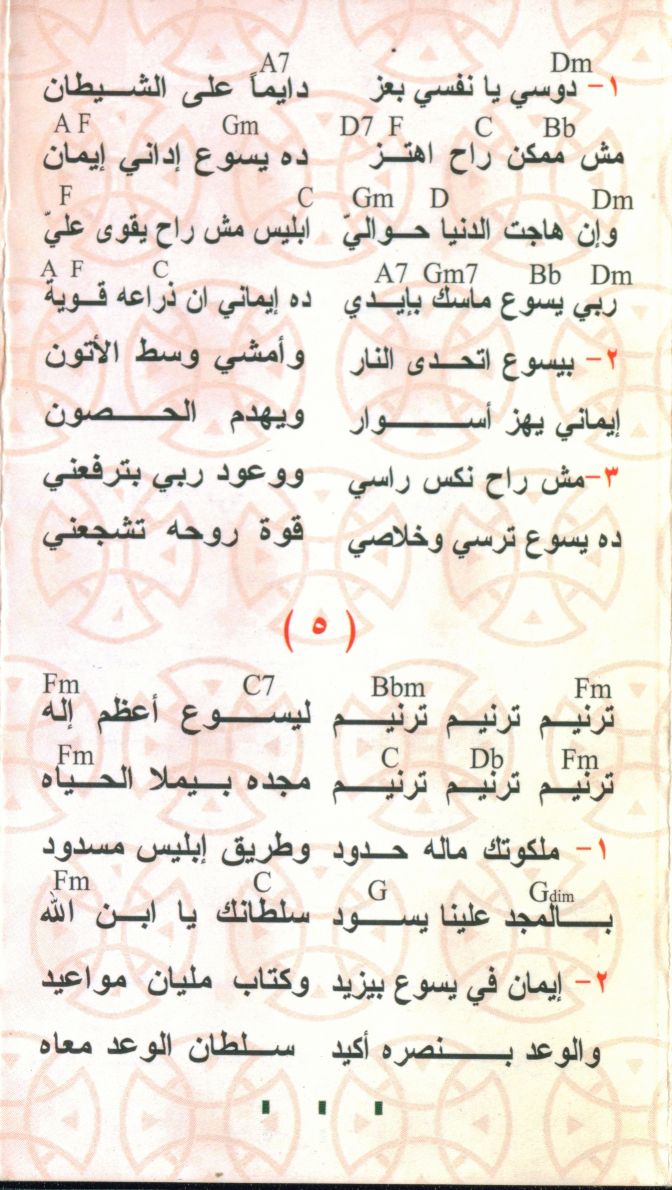 Dm A7
١- دوسي يا نفسي بعز دايماً على الشـيطان
Bb C F D7 Gm A F
مش ممكن راح اهتـز ده يسوع إداني إيمان
Dm D Gm C F
وإن هاجت الدنيا حـواليّ ابليس مش راح يقوى عليّ
Dm Bb Gm7 A7 C A F
ربي يسوع ماسك بإيـدي ده إيماني ان ذراعه قـوية
٢- بيسوع اتحـدى النار وأمشي وسط الأتون
إيماني يهز أسـوار ويهدم الحـصون
٣- مش راح نكس راسي ووعود ربي بترفعني
ده يسوع ترسي وخلاصي قوة روحه تشجعني
( ٥ )
Fm Bbm C7 Fm
ترنيـم ترنيـم ترنيـم ليسـوع أعظم إله
Fm Db C Fm
ترنيـم ترنيـم ترنيـم مجده بـيملا الحـياه
١- ملكوتك ماله حـدود وطريق إبليس مسدود
Gdim G C Fm
بـالمجد علينا يسـود سلطانك يا ابـن الله
٢- إيمان في يسوع بيزيد وكتاب مليان مواعيد
والوعد بـنصره أكيد سـلطان الوعد معاه